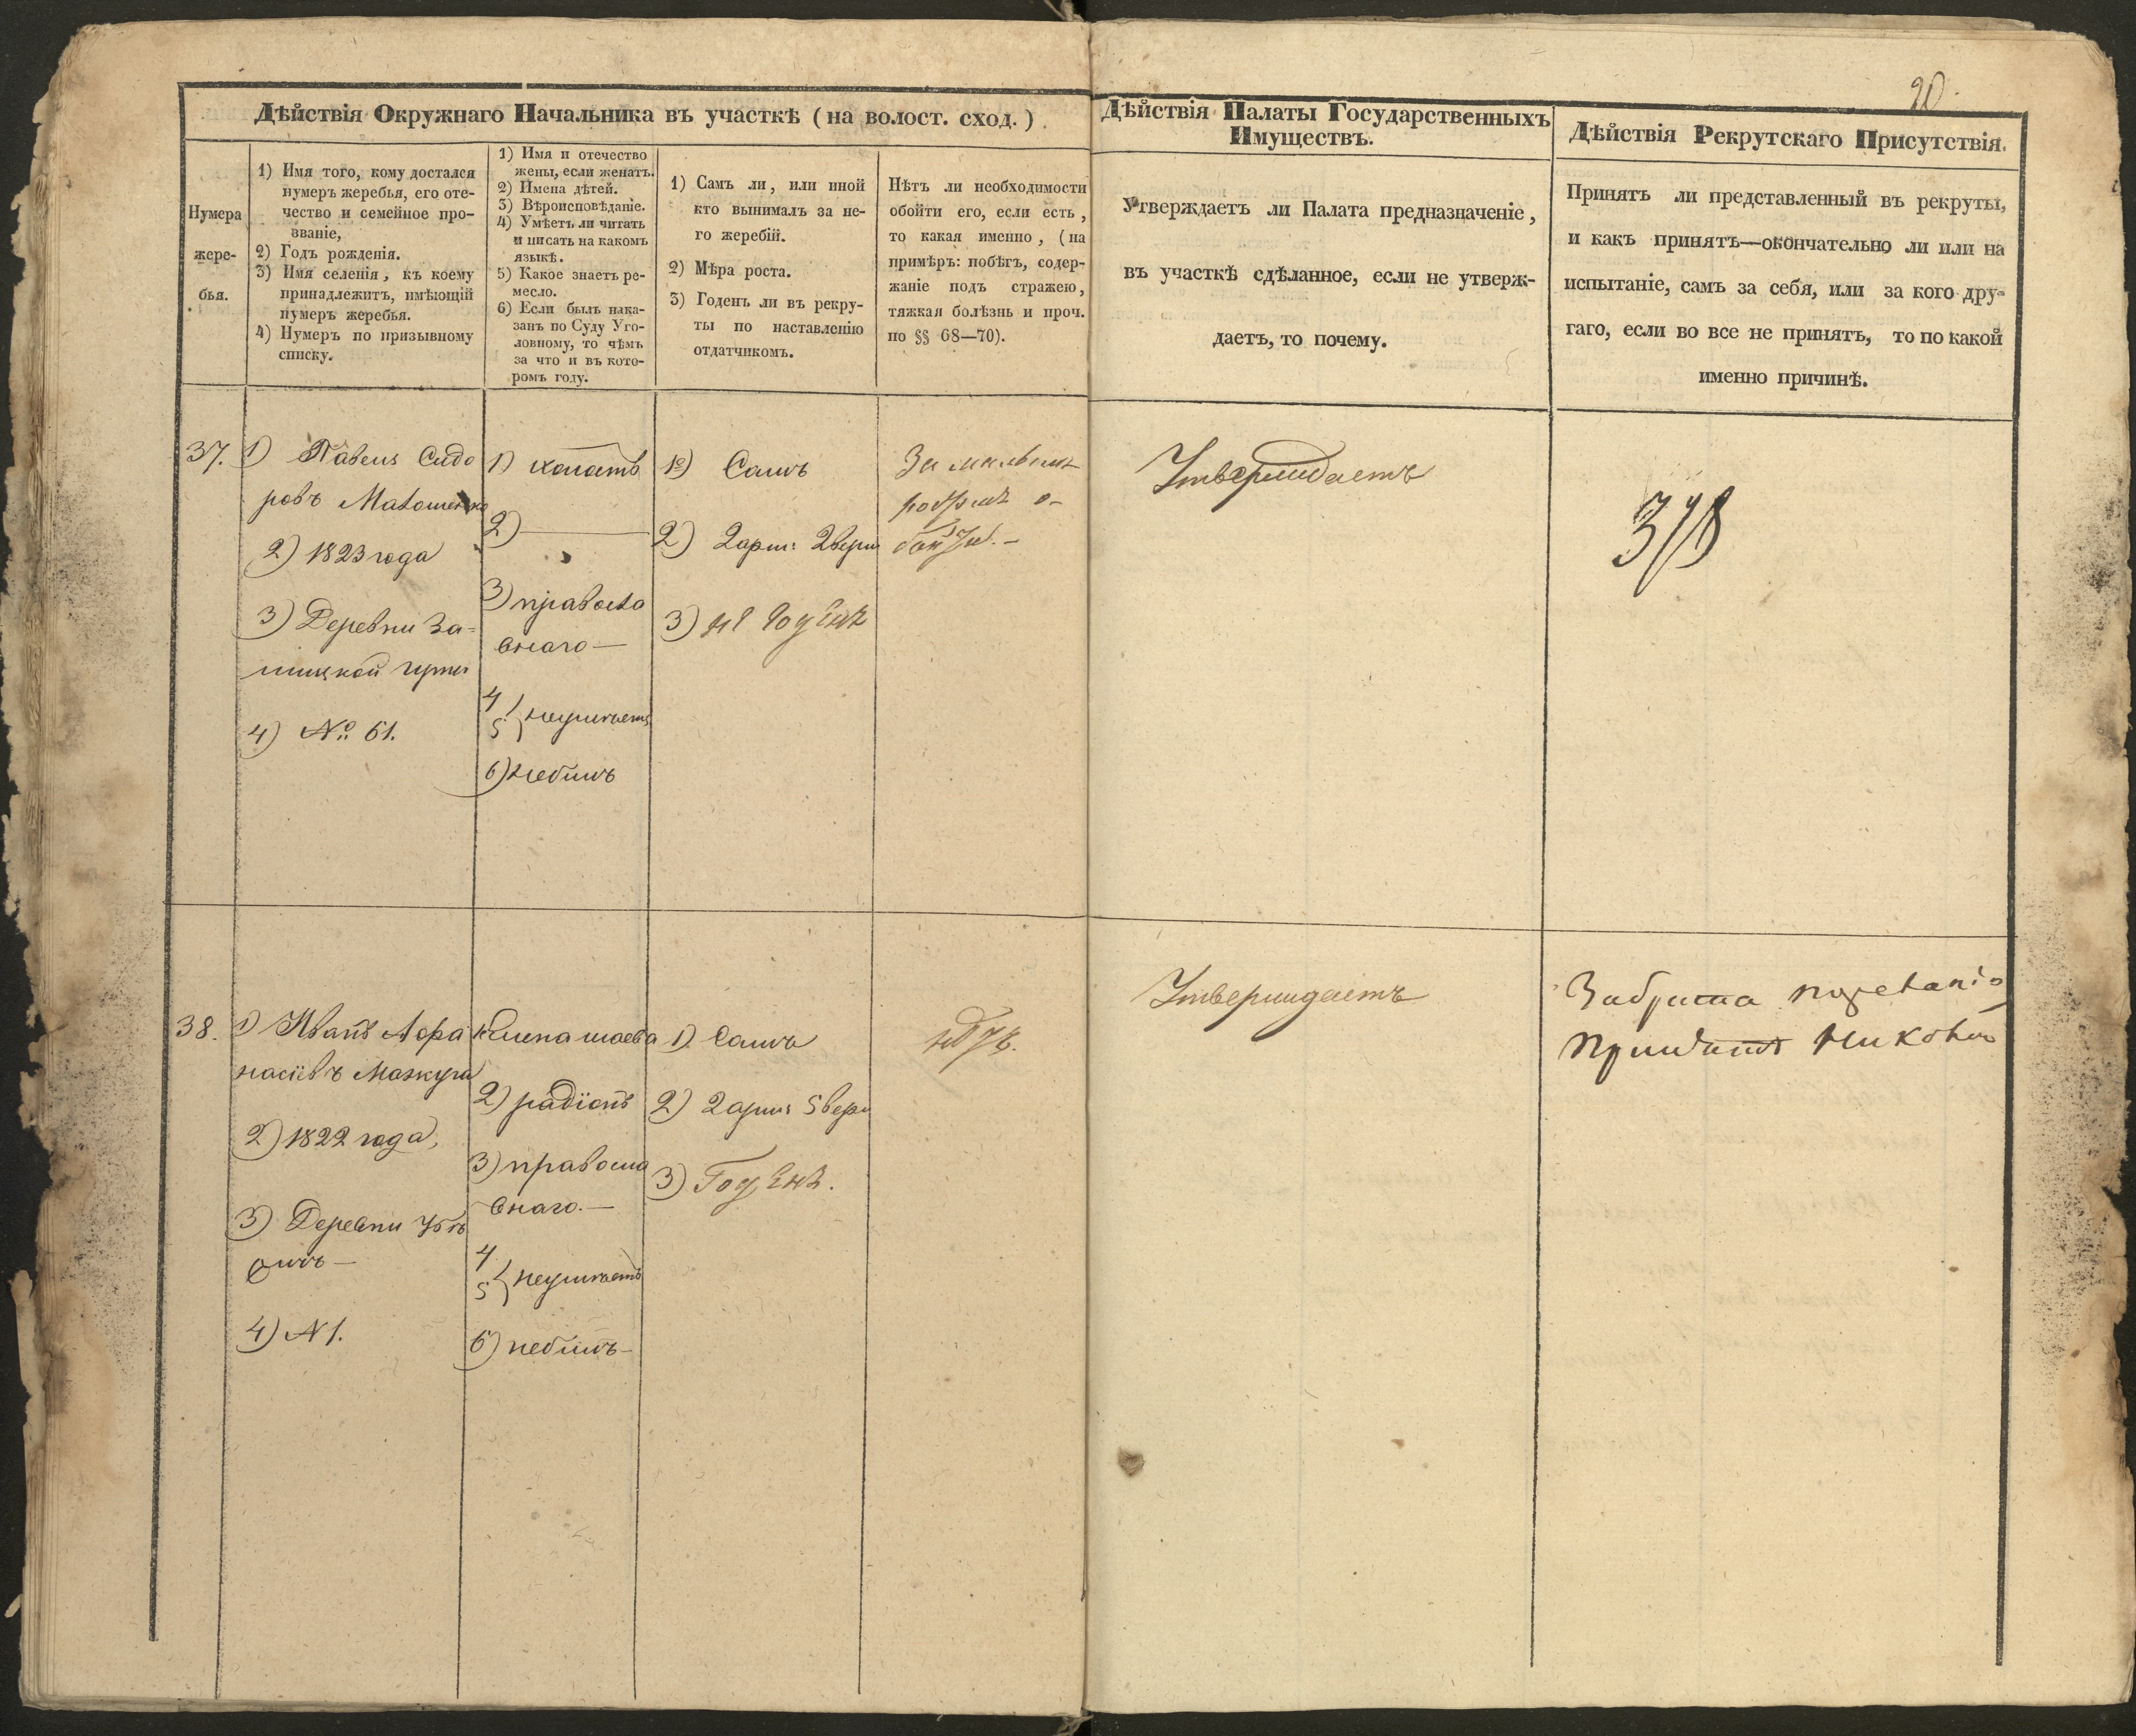 20.
Дѣйствія Окружнаго Начальника въ участкѣ (на волост. сход.)
Нумера
жере-
бья.
1) Имя того, кому достался
нумеръ жеребья, его оте-
чество и семейное про-
званіе,
2) Годъ рожденія.
3) Имя селенія, къ коему
принадлежитъ, имѣющій
нумеръ жеребья.
4) Нумеръ по призывному
списку.
1) Имя и отечество
жены, если женатъ.
2) Имена дѣтей.
3) Вѣроисповѣданіе.
4) Умѣетъ ли читать
и писать на какомъ
языкѣ.
5) Какое знаетъ ре-
месло.
6) Если былъ нака-
занъ по Суду Уго-
ловному, то чѣмъ
за что и въ кото-
ромъ году.
1) Самъ ли, или иной
кто вынималъ за не-
го жеребій.
2) Мѣра роста.
3) Годенъ ли въ рекру-
ты по наставленію
отдатчикомъ.
Нѣтъ ли необходимости
обойти его, если есть,
то какая именно, (на
примѣръ: побѣгъ, содер-
жаніе подъ стражею,
тяжкая болѣзнь и проч.
по §§ 68—70).
Дѣйствія Палаты Государственныхъ
Имуществъ.
Утверждаетъ ли Палата предназначеніе,
въ участкѣ сдѣланное, если не утверж-
даетъ, то почему.
Дѣйствія Рекрутскаго Присутствія.
Принятъ ли представленный въ рекруты,
и какъ принятъ—окончательно ли или на
испытаніе, самъ за себя, или за кого дру-
гаго, если во все не принятъ, то по какой
именно причинѣ.
37.
1) Павелъ Сидо
ровъ
2) 1823 года
3) Деревни За-
4) №: 61.
1) холостъ
2) —
3) правосла
внаго —
4
5 } неумѣетъ
6) небылъ
1) Самъ
2) 2 арш: 2 верш
3) не годенъ
За малымъ
ростомъ о-
Утверждаетъ
38.
1) Иванъ Афа
насіевъ Мажуга
2) 1822 года,
3) Деревни
4) N 1.
2) радіонъ
3) правосла
внаго. —
4
5 } неумѣетъ
6) небылъ —
1) Самъ
2) 2 арш: 5 верш
3) Годенъ.
Утверждаетъ